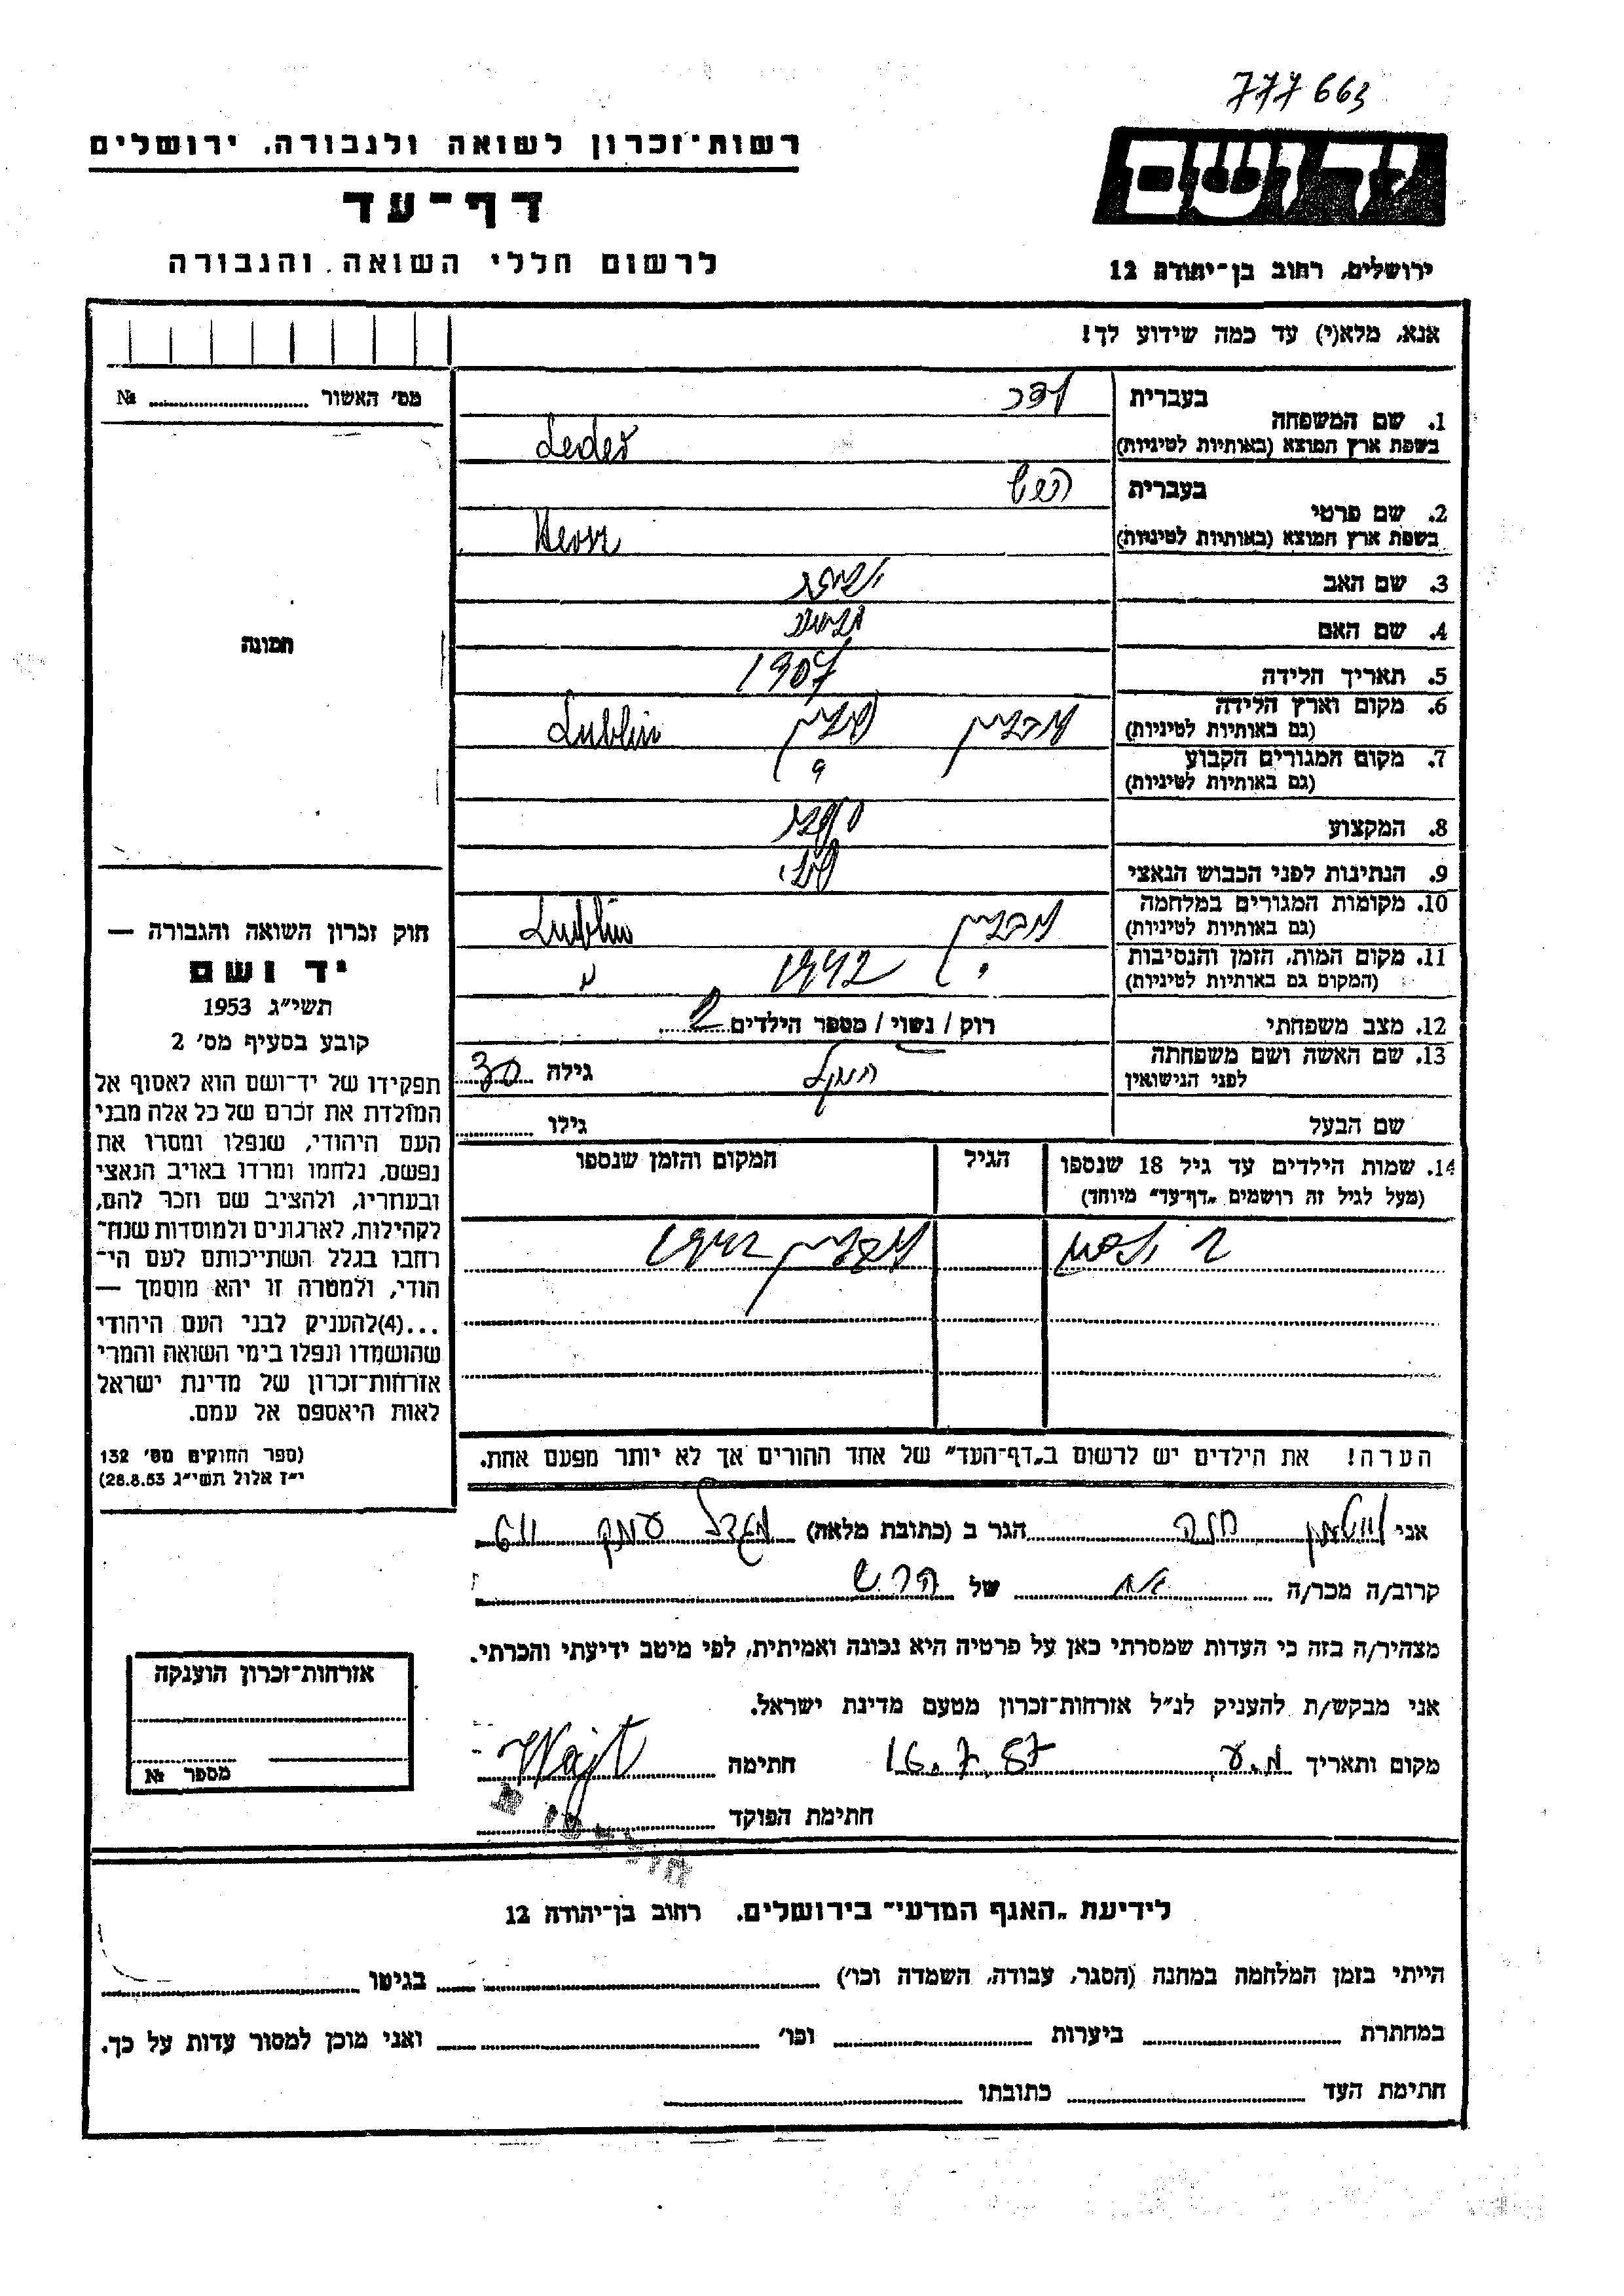 777663
רשות־זכרון לשואה ולגבורה. ירושלים
דף־עד
לרשום חללי השואה והגבורה
יד ושם
ירושלים, רחוב בן־יהודה 12
אנא, מלא(י) עד כמה שידוע לך!
מס׳ האשור № 
בעברית לדר
1. שם המשפחה
בשפת ארץ המוצא (באותיות לטיניות) Leder
בעברית הרש
2. שם פרטי
בשפת ארץ המוצא (באותיות לטיניות)
3. שם האב
4. שם האם
5. תאריך הלידה 1907
6. מקום וארץ הלידה לובלין פולין Lublin
(גם באותיות לטיניות)
7. מקום המגורים הקבוע ?
(גם באותיות לטיניות)
8. המקצוע
9. הנתינות לפני הכבוש הנאצי פולני
10. מקומות המגורים במלחמה לובלין Lublin
(גם באותיות לטיניות)
11. מקום המות, הזמן והנסיבות 1942
(המקום גם באותיות לטיניות)
12. מצב משפחתי רוק / נשוי / מספר הילדים 2
13. שם האשה ושם משפחתה
לפני הנישואין גילה
שם הבעל גילו
14. שמות הילדים עד גיל 18 שנספו הגיל המקום והזמן שנספו
(מעל לגיל זה רושמים „דף־עד״ מיוחד)
2 ילדים לובלין 1942
הערה! את הילדים יש לרשום ב„דף־העד״ של אחד ההורים אך לא יותר מפעם אחת.
תמונה
חוק זכרון השואה והגבורה —
יד ושם
תשי״ג 1953
קובע בסעיף מס׳ 2
תפקידו של יד־ושם הוא לאסוף אל
המולדת את זכרם של כל אלה מבני
העם היהודי, שנפלו ומסרו את
נפשם, נלחמו ומרדו באויב הנאצי
ובעוזריו, ולהציב שם וזכר להם,
לקהילות, לארגונים ולמוסדות שנח־
רחבו בגלל השתייכותם לעם הי־
הודי, ולמטרה זו יהא מוסמך —
...(4)להעניק לבני העם היהודי
שהושמדו ונפלו בימי השואה והמרי
אזרחות־זכרון של מדינת ישראל
לאות היאספם אל עמם.
(ספר החוקים מס׳ 132
י״ז אלול תשי״ג 28.8.53)
אני חנה הגר ב (כתובת מלאה) מגדל עמק
קרוב/ה מכר/ה אח של הרש
מצהיר/ה בזה כי העדות שמסרתי כאן על פרטיה היא נכונה ואמיתית, לפי מיטב ידיעתי והכרתי.
אני מבקש/ת להעניק לנ״ל אזרחות־זכרון מטעם מדינת ישראל.
מקום ותאריך מ.ע. 16.7.87 חתימה Wajt
חתימת הפוקד
אזרחות־זכרון הוענקה
מספר №
לידיעת „האגף המדעי״ בירושלים. רחוב בן־יהודה 12
הייתי בזמן המלחמה במחנה (הסגר, עבודה, השמדה וכו׳) בגיטו
במחתרת ביערות וכו׳ ואני מוכן למסור עדות על כך.
חתימת העד כתובתו